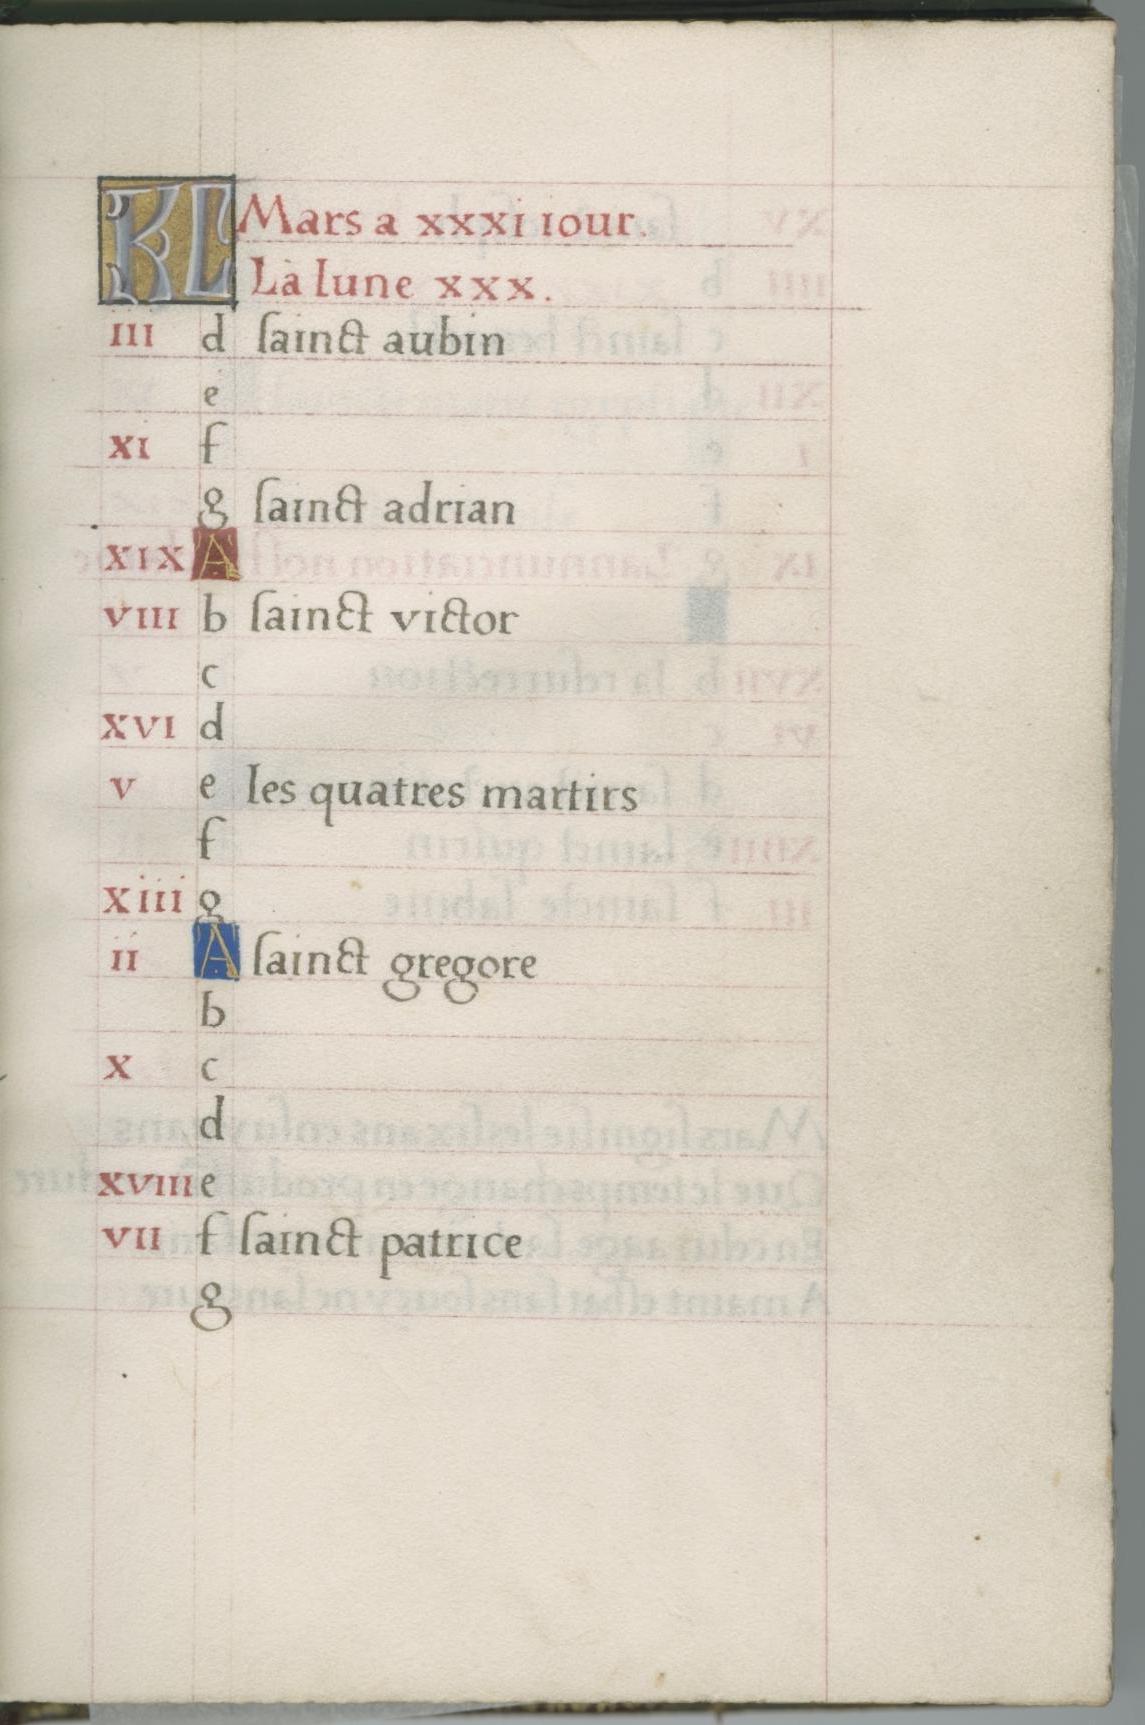 KL Mars a xxxi iour.
La lune xxx.
III d sainct aubin
e
xi f
g sainct adrian
XIX A
VIII b sainct victor
c
XVI d
v e les quatres martirs
f
Xiii g
ii A sainct gregore
b
x c
d
xviii e
VII f sainct patrice
g